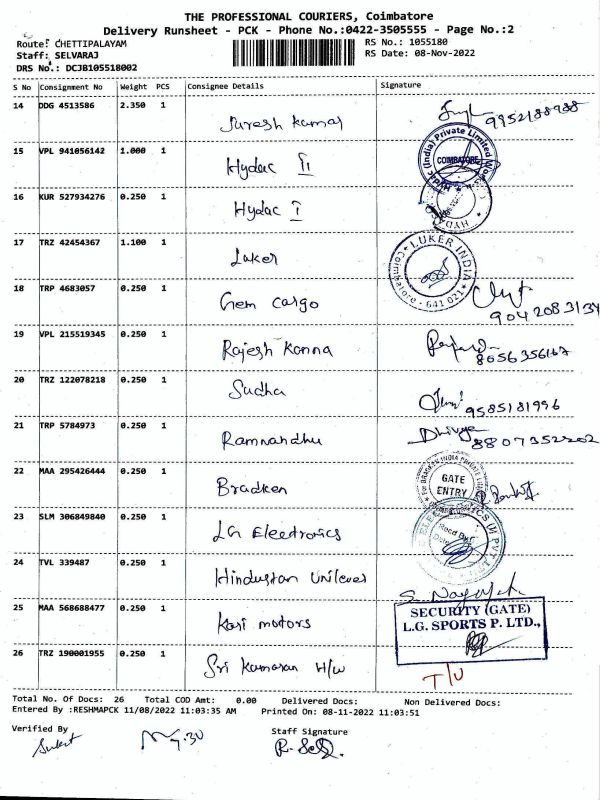 THE PROFESSIONAL COURIERS, Coimbatore
Delivery Runsheet - PCK - Phone No.:0422-3505555 - Page No.:2
Route: CHETTIPALAYAM RS No.: 1055180
Staff: SELVARAJ RS Date: 08-Nov-2022
DRS No.: DCJB105518002
S No Consignment No Weight PCS Consignee Details Signature
14 DDG 4513586 2.350 1 Suresh kumar 9952188988
15 VPL 941056142 1.000 1 Hydac II (India) Private Limited COIMBATORE
16 KUR 527934276 0.250 1 Hydac I HYDA
17 TRZ 42454367 1.100 1 Luker LUKER INDIA Coimbatore - 641 021
18 TRP 4683057 0.250 1 Gem cargo 9042083134
19 VPL 215519345 0.250 1 Rajesh Kanna 8056356167
20 TRZ 122078218 0.250 1 Sudha 9585181996
21 TRP 5784973 0.250 1 Ramnandhu Dhivya 8807352202
22 MAA 295426444 0.250 1 Bradken For BRADKEN INDIA PRIVATE GATE ENTRY
23 SLM 306849840 0.250 1 LG Electronics
24 TVL 339487 0.250 1 Hindustan Unilever
25 MAA 568688477 0.250 1 Kari motors SECURITY (GATE)
L.G. SPORTS P. LTD.,
26 TRZ 190001955 0.250 1 Sri Kumaran H/W T/U
Total No. Of Docs: 26 Total COD Amt: 0.00 Delivered Docs: Non Delivered Docs:
Entered By :RESHMAPCK 11/08/2022 11:03:35 AM Printed On: 08-11-2022 11:03:51
Verified By Staff Signature